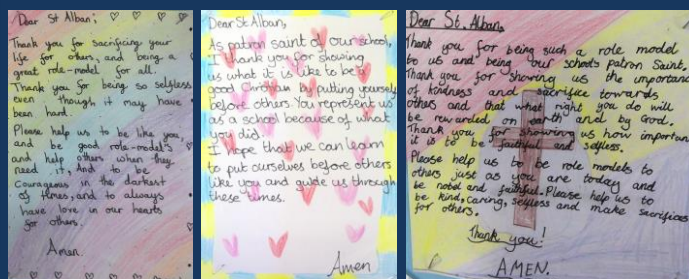 Dear St Alban,
Thank you for sacrificing your
life for others, and being a
great role-model for all.
Thank you for being so selfless
even though it may have
been hard.
Please help us to be like you,
and be good role-models
and help others when they
need it, And to be
Courageous in the darkest
of times, and to always
have love in our hearts
for others.
Amen.
Dear St Alban,
As patron saint of our school,
I thank you for showing
us what it is like to be a
good Christian by putting yourself
before others. You represent us
as a school because of what
you did.
I hope that we can learn
to put ourselves before others
like you and guide us through
these times.
Amen
Dear St. Alban,
Thank you for being such a role model
to us and being our school's patron Saint.
Thank you for showing us the importance
of kindness and sacrifice towards
others and that what right you do will
be rewarded on earth and by God.
Thank you for showing us how important
it is to be faithful and selfless.
Please help us to be role models to
others just as you are today and
be nobel and faithful. Please help us to
be kind, caring, selfless and make sacrifices
for others.
Thank you!
AMEN.